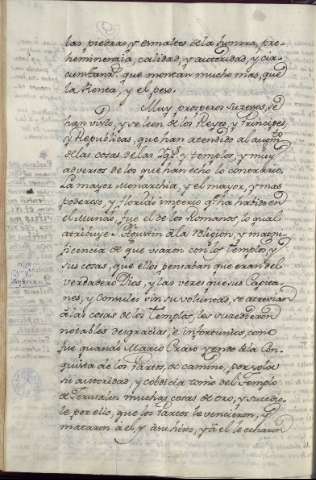 las piedras, y esmaltes de la hechura, pre-
heminencia, calidad, y autoridad, y cir-
cunstancias que montan mucho mas, que
la Renta, y el peso.
Muy prosperos sucesos, se
han visto, y se leen de los Reyes, y Principes,
y Republicas, que han atendido al aumto
de las cosas de las Igs. y templos, y muy
adversos de los que han echo lo contrario.
La mayor Monarchia, y el mayor, y mas
poderoso, y florido imperio q. ha habido en
el Mundo, fue el de los Romanos, lo qual
atribuye Sn. Agustin á la Religion, y magni-
ficencia de que usaron con los templos, y
sus cosas, que ellos pensaban que eran del
verdadero Dios, y las veces que sus Capita-
nes, y Consules sin su voluntad, se atrevian
á las cosas de los Templos, les sucedieron
notables desgracias, é infortunios, como
fue quando Marco Craso yendo á la Con-
quista de los Partos, de camino, por sola
su autoridad, y cobdicia tomó del Templo
de Jerusalen muchas cosas de oro, y sucedio-
le por ello, que los Partos le vencieron, y
mataron á el, y á su hijo, y á el le echaron